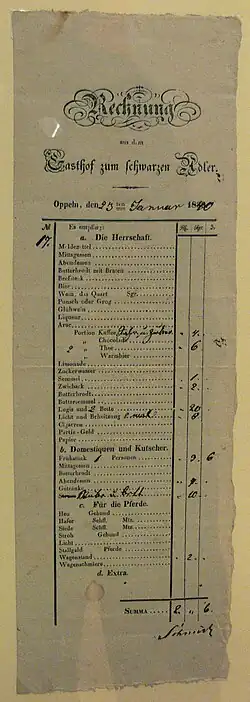 Rechnung
aus dem
Gasthof zum schwarzen Adler.
Oppeln, den 25 ten Januar 1840
№ Es empfing: Rtl. Sgr. ₰.
17. a. Die Herrschaft.
Mittagessen
Abendessen
Butterbrodt mit Braten
Beefsteak
Bier
Wein, das Quart Sgr.
Punsch oder Grog
Glühwein
Liqueur
Arac
Portion Kaffee, „ 4. „
„ Chocolade
2 „ Thee „ 6
„ Warmbier
Limonade
Zuckerwasser
Semmel „ 1.
Zwieback „ 2.
Butterbrodt
Buttersemmel
Logis und 2 Bette „ 20
Licht und Beheitzung „ 8
Cigarren
Portis-Geld
Papier
b. Domestiquen und Kutscher.
Frühstück 1 Personen „ 3. 6
Mittagessen
Butterbrodt
Abendessen „ 4.
Getränke
„ 10.
c. Für die Pferde.
Heu Gebund
Hafer Schfl. Mtz.
Siede Schfl. Mtz.
Stroh Gebund
Licht
Stallgeld Pferde
Wagenstand „ 2.
Wagenschmiere
d. Extra.
Summa 2. „ 6.